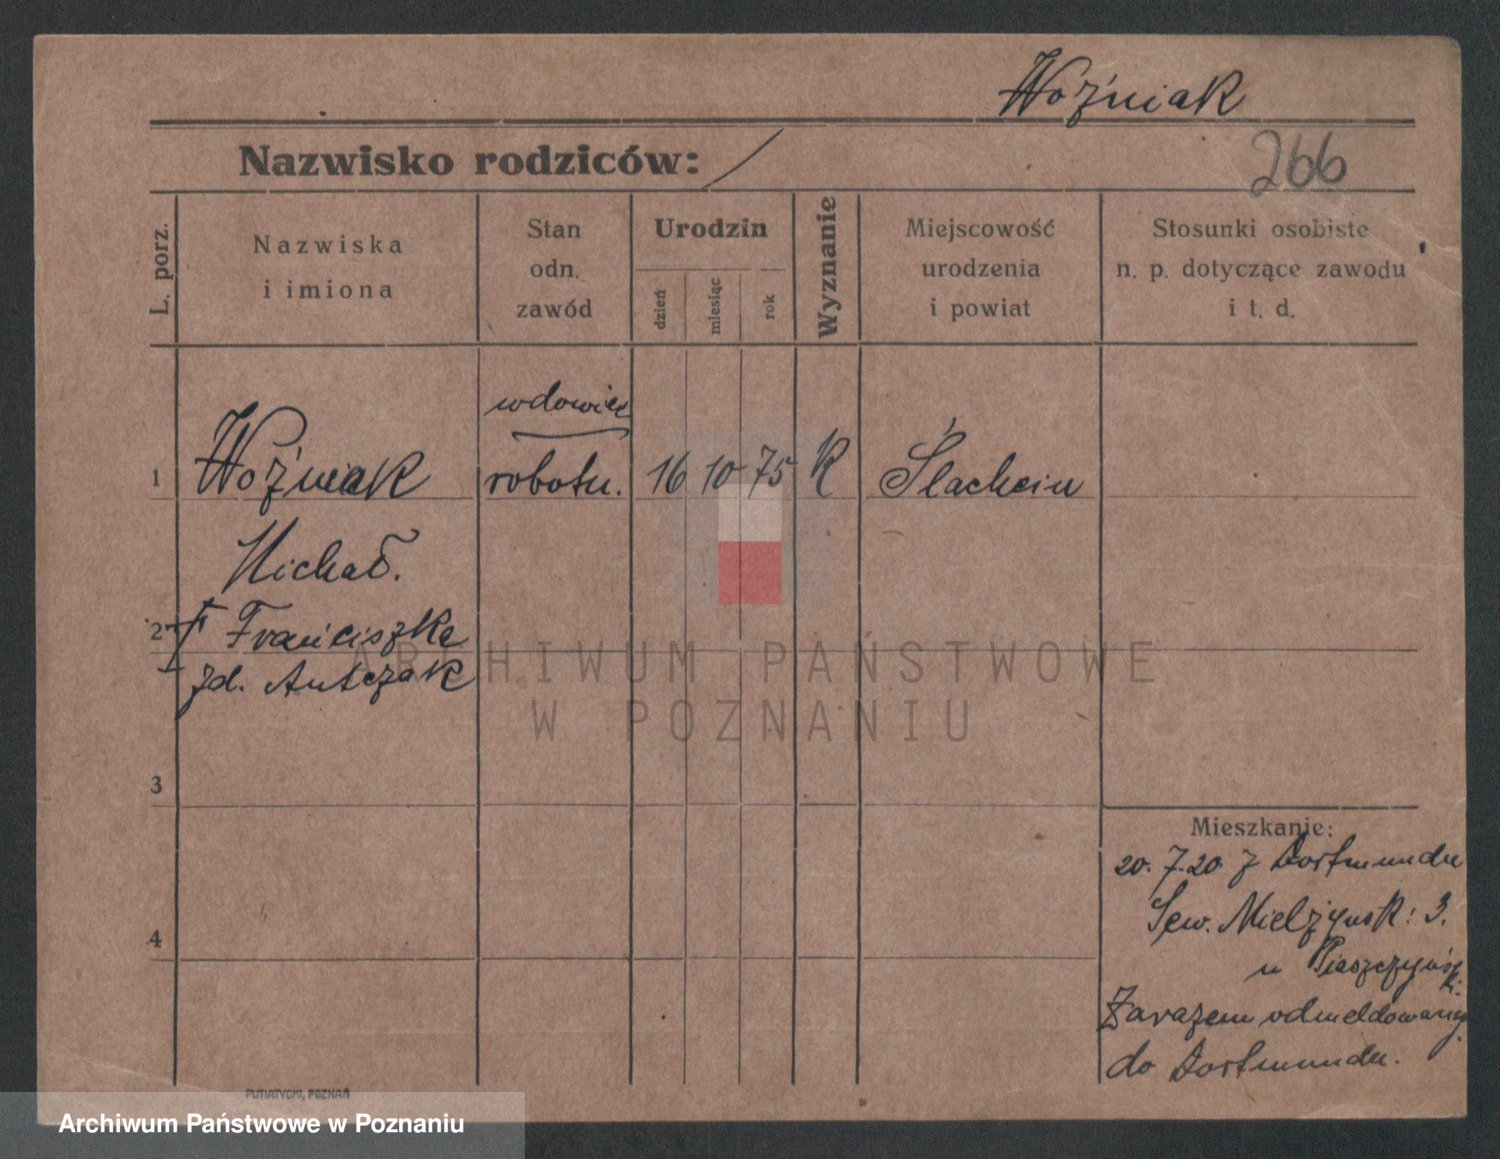 Woźniak
Nazwisko rodziców: /
266
L. porz.
Nazwiska
i imiona
Stan
odn.
zawód
Urodzin
dzień
miesiąc
rok
Wyznanie
Miejscowość
urodzenia
i powiat
Stosunki osobiste
n. p. dotyczące zawodu
i t. d.
wdowiec
1 Woźniak robotn. 16 10 75 K Ślachcin
Michał.
2 † Franciszka
zd. Antczak
ARCHIWUM PAŃSTWOWE
W POZNANIU
3
Mieszkanie:
20.7.20 z Dortmundu
Sew. Mielżyńsk: 3.
4
u Piaszczyński.
Zarazem odmeldowany
do Dortmundu.
PUTIATYCKI, POZNAŃ
Archiwum Państwowe w Poznaniu